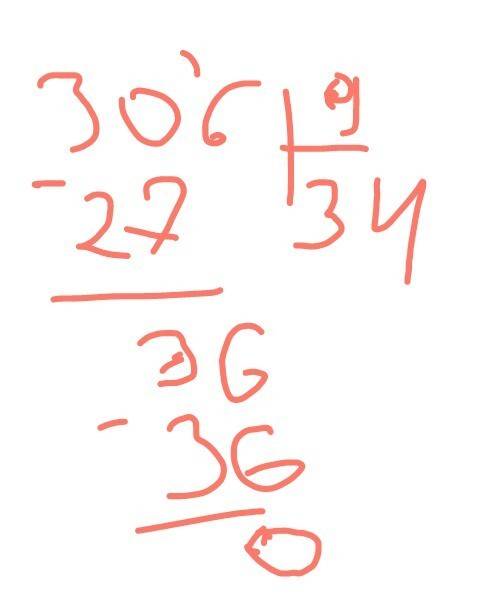 306 9
- 27 34
36
- 36
0